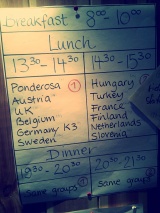 Breakfast 8:00 - 10:00
Lunch
13:30 - 14:30 14:30 - 15:30
Ponderosa 1 Hungary
Austria Turkey
UK France
Belgium Finland
Germany K3 Netherlands
Sweden Slovenia
Dinner
19:30 - 20:30 20:30 - 21:30
Same groups Same groups